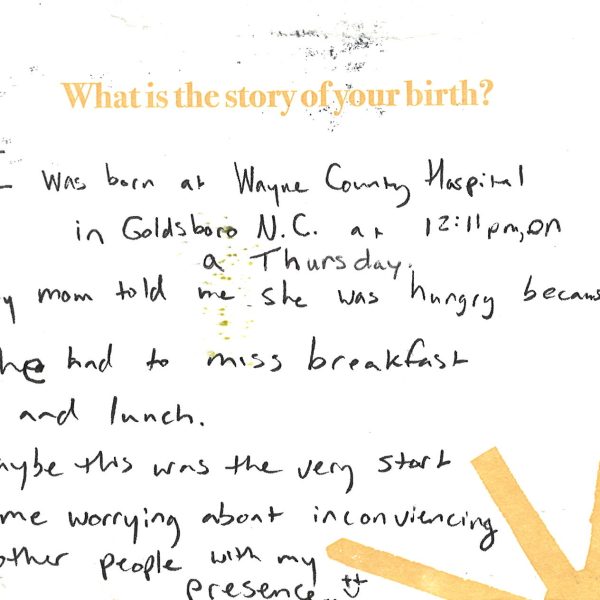 What is the story of your birth?
I was born at Wayne County Hospital
in Goldsboro N.C. at 12:11 pm, on
a Thursday.
y mom told me she was hungry becaus
he had to miss breakfast
and lunch.
aybe this was the very start
me worrying about inconviencing
other people with my
presence..